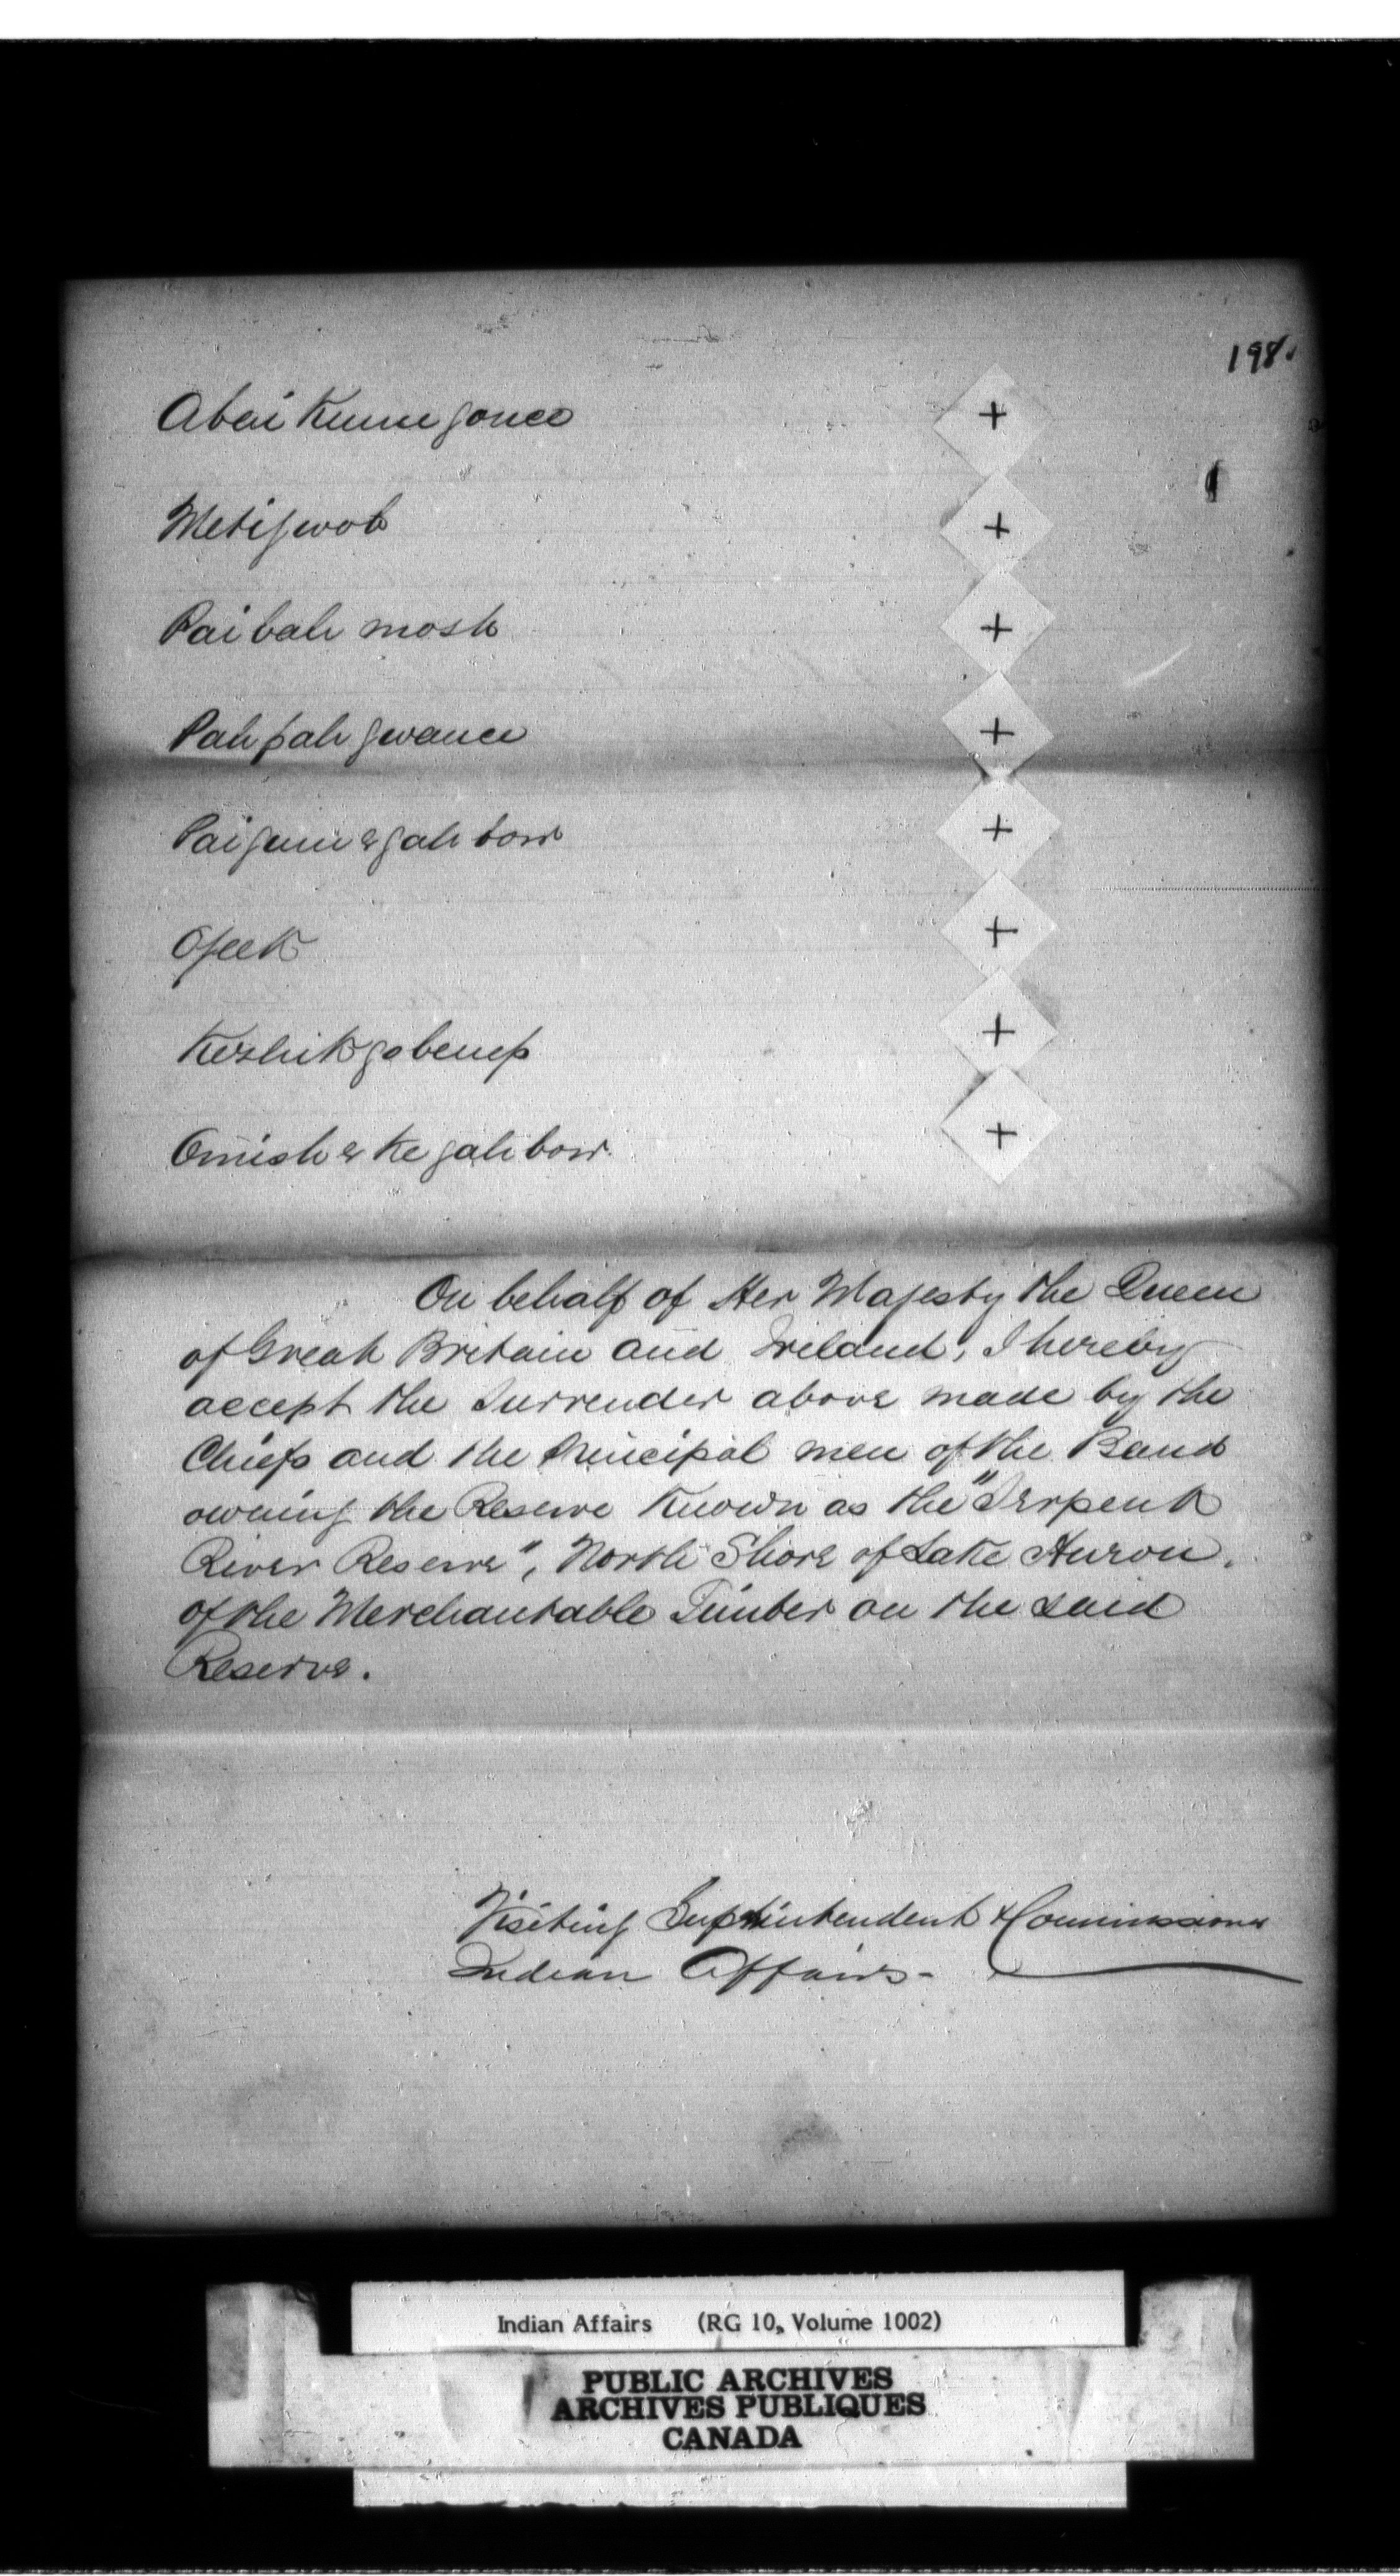 198.
Abai Kume gonce +
Metigwob +
Pai bah mosh +
Pah pah gwance +
Pai gum e gah bow +
Ojeek +
Kezhik go benep +
Omish e ke gah bow. +
On behalf of Her Majesty the Queen
of Great Britain and Ireland, I hereby
accept the Surrender above made by the
Chiefs and the Principal men of the Band
owning the Reserve Known as the "Serpent
River Reserve", North Shore of Lake Huron.
of the Merchantable Timber on the said
Reserve.
Visiting Suptintendent & Commissioner
Indian Affairs -
Indian Affairs (RG 10, Volume 1002)
PUBLIC ARCHIVES
ARCHIVES PUBLIQUES
CANADA